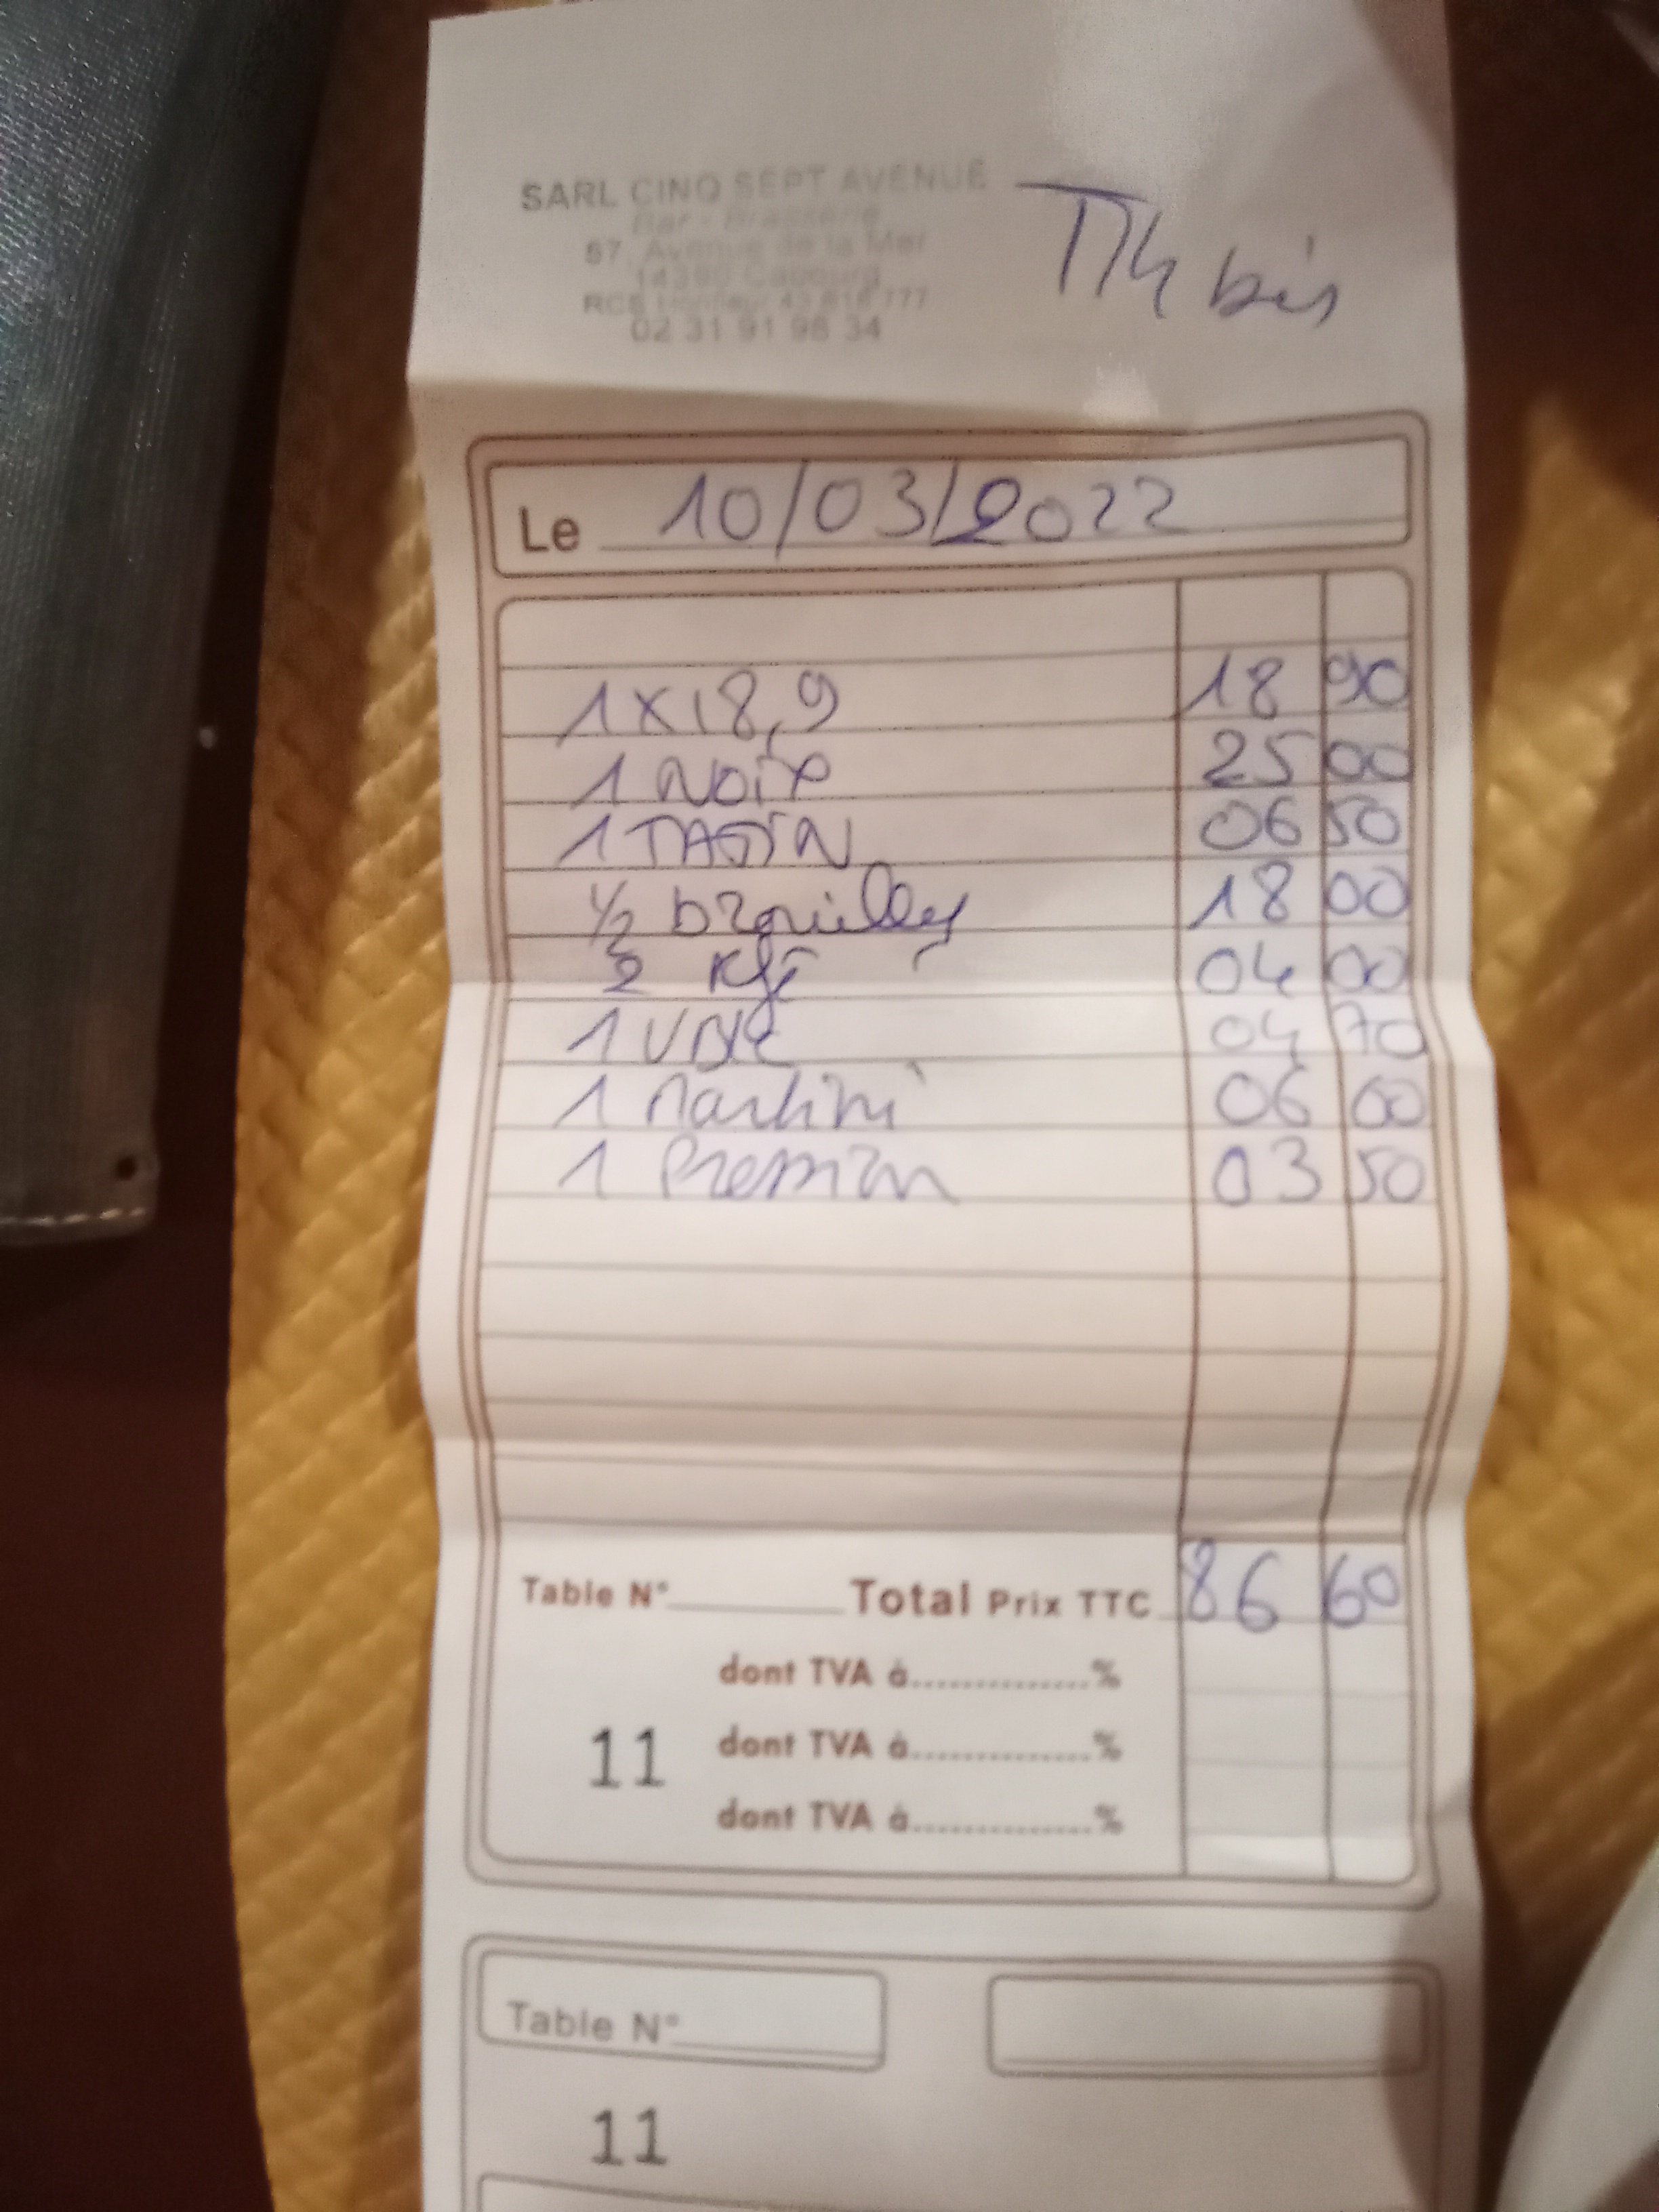 SARL CINQ SEPT AVENUE
Bar - Brasserie
57, Avenue de la Mer
14390 Cabourg
RCS Honfleur
02 31 91 98 34
T14 bis
Le 10/03/2022
1 x 18,9 18 90
1 NOIX 25 00
1 TATIN 06 50
1/2 brouilly 18 00
2 Kfé 04 00
1 04 70
1 Martini 06 00
1 Pression 03 50
Table N° Total Prix TTC 86 60
dont TVA à..............%
11 dont TVA à..............%
dont TVA à..............%
Table N°
11